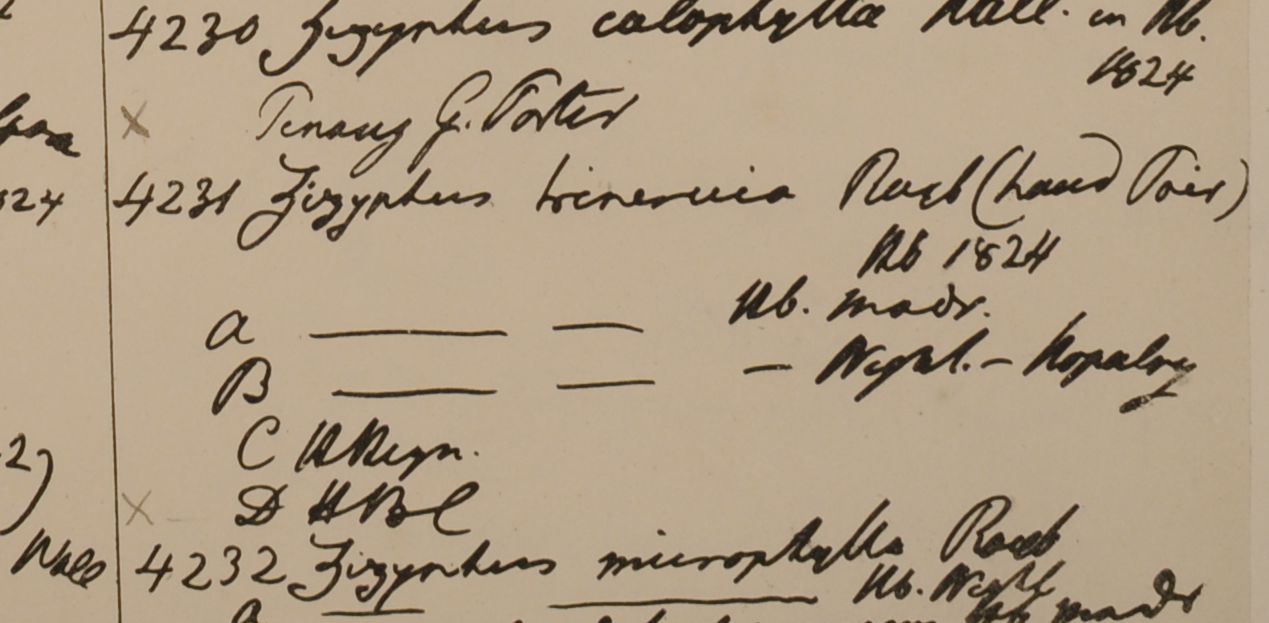 4230 Zizyphus calophylla Wall. in Hb.
1824
Penang G. Porter
4231 Zizyphus trinervia Roxb (haud Poir)
Hb 1824
a Hb. madr.
B — Wight. –
C H Heyn.
D HBC
4232 Zizyphus microphylla Roxb
Hb. Wight
Hb madr
24
2)
Wall